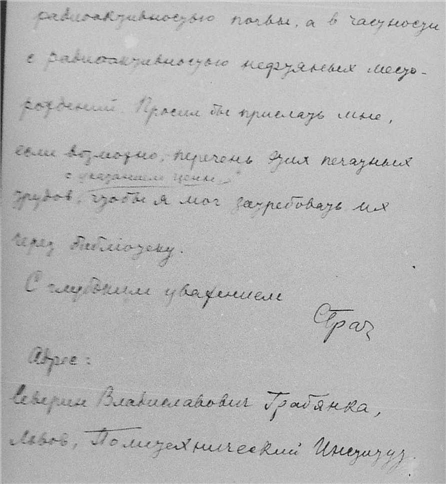 радиоактивностью почвы, а в частности
с радиоактивностью нефтяных место-
рождений. Просил бы прислать мне,
если возможно, перечень этих печатных
с указанием цены,
трудов, чтобы я мог затребовать их
через библиотеку.
С глубоким уважением
Адрес:
Северин Владиславович Грабянка,
Львов, Политехнический Институт.